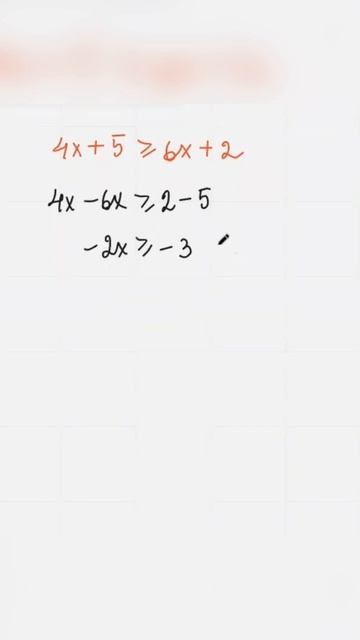 4x + 5 ⩾ 6x + 2
4x - 6x ⩾ 2 - 5
- 2x ⩾ - 3